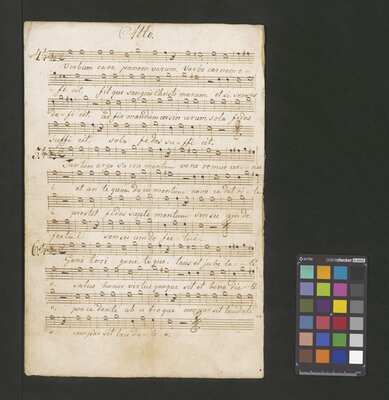 Alto.
Verbum caro panem verum verbo carnem e-
fi cit fit que sanguis Christi merum et si sensus
de fi cit ad fir mandum cor sin cerum sola fides
suffi cit. sola fi des su ffi cit.
Tantum ergo Sacra mentum vene re mur cer nui
et an ti quum do cu mentum novo ce dat ri tu
praestet fides suple mentum sen su um de
fectui sensu um de fec tui
Geni tori geni to que laus et jubi la
salus honor virtus quoque sit et bene dic
pro ce denti ab u tro que
compar sit lau da ti o